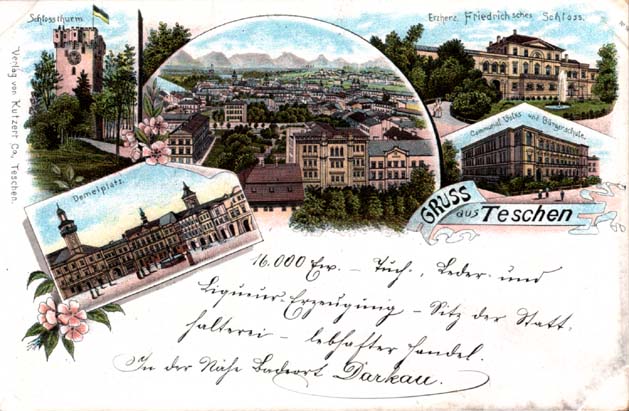 Schlossthurm
Erzherz. Friedrich'sches Schloss.
Verlag von Kutzer & Co, Teschen.
Communal Volks- und Bürgerschule.
Demelplatz.
GRUSS
aus Teschen
16.000 Einw. – Tuch-, Leder- und
Liqueur-Erzeugung – Sitz der Statt-
halterei – lebhafter Handel.
In der Nähe Badeort Darkau.